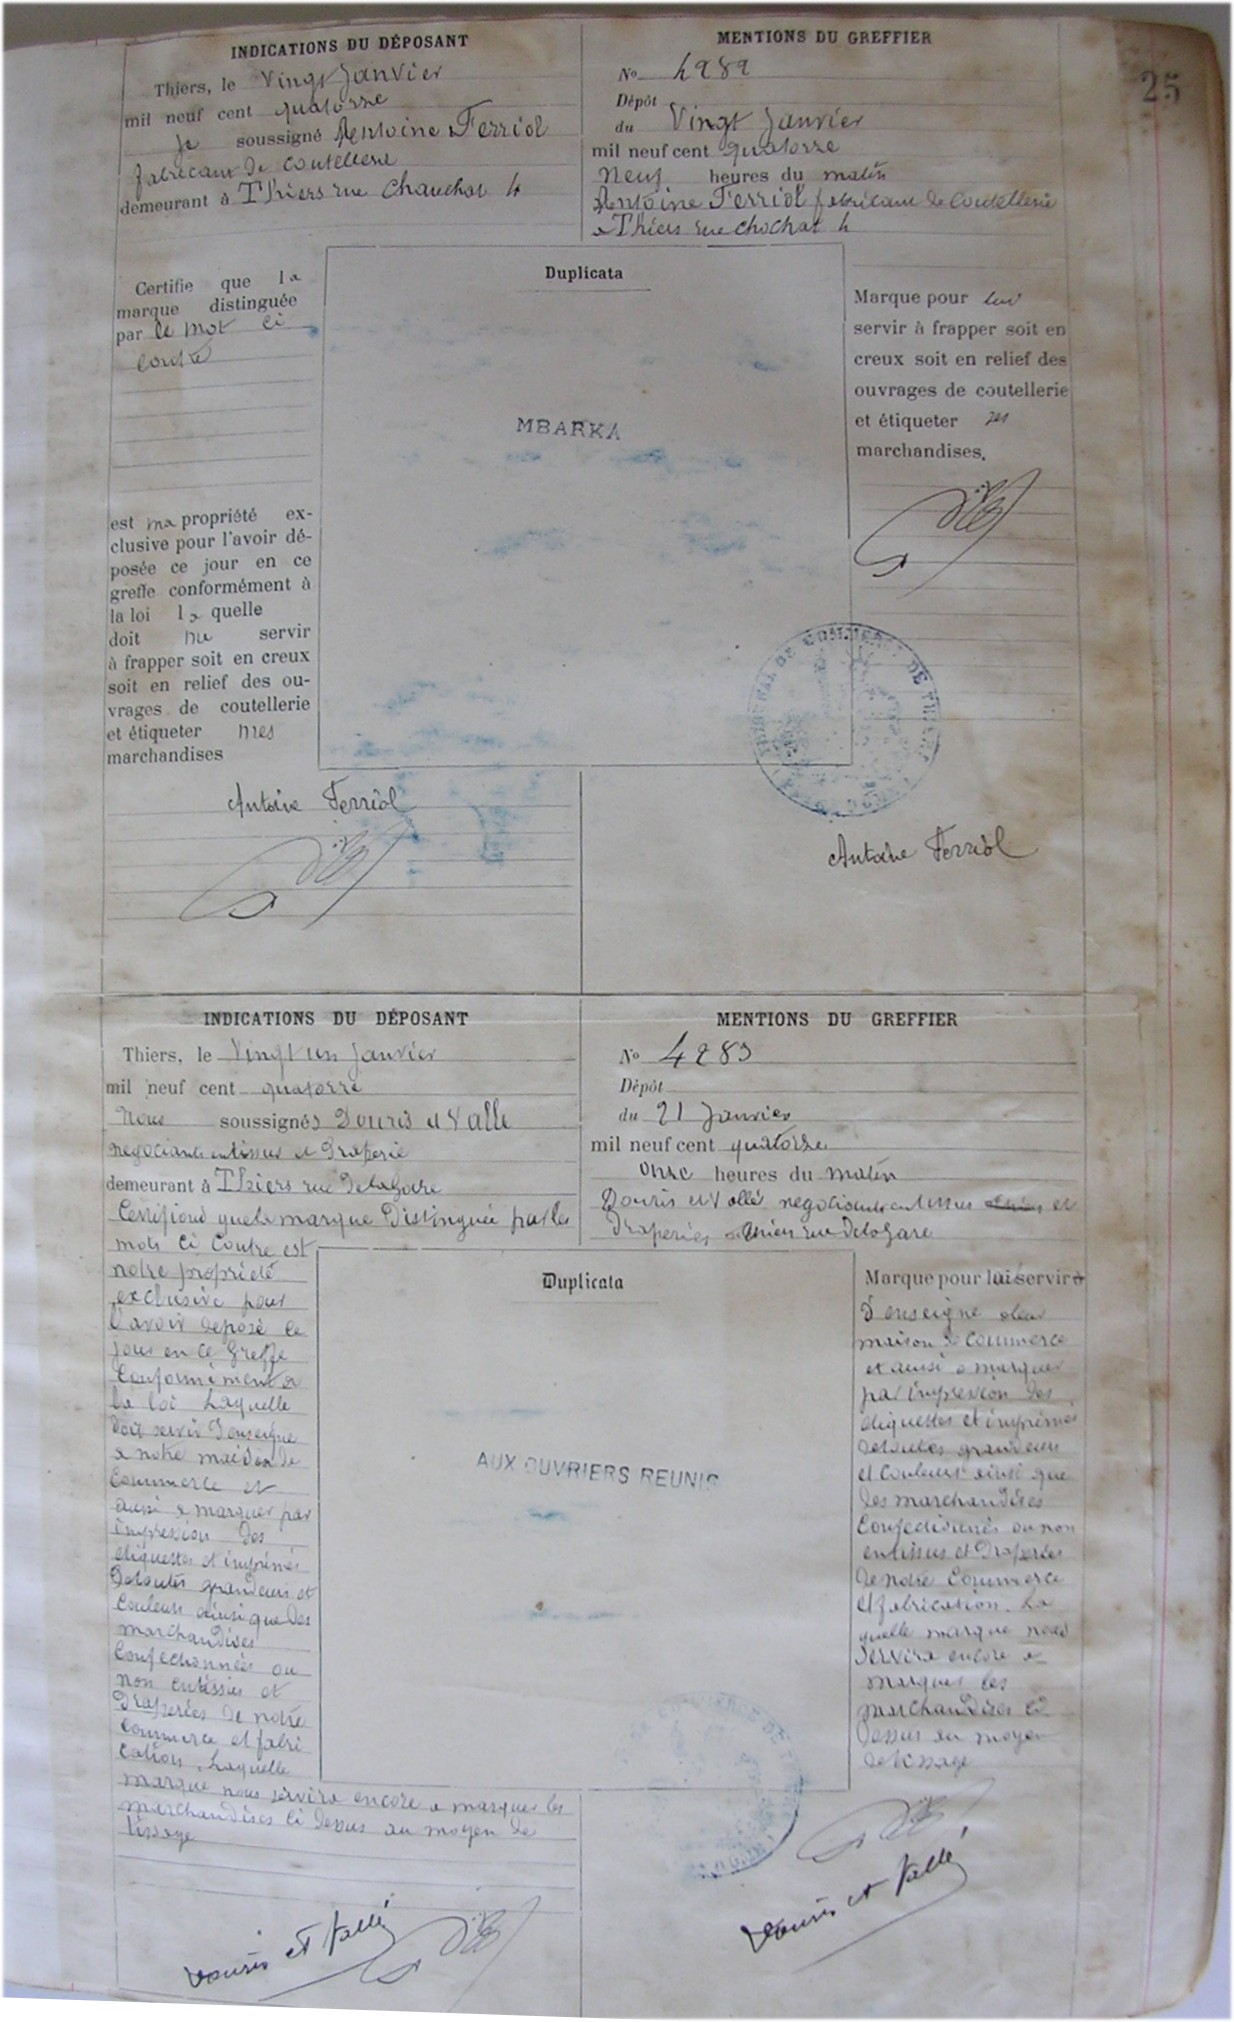 25
INDICATIONS DU DÉPOSANT
Thiers, le Vingt Janvier
mil neuf cent quatorze
Je soussigné Antoine Ferriol
fabricant de coutellerie
demeurant à Thiers rue Chauchat 4
Certifie que la
marque distinguée
par le mot ci
contre
est ma propriété ex-
clusive pour l'avoir dé-
posée ce jour en ce
greffe conformément à
la loi la quelle
doit me servir
à frapper soit en creux
soit en relief des ou-
vrages de coutellerie
et étiqueter mes
marchandises
Antoine Ferriol
MENTIONS DU GREFFIER
No 4282
Dépôt
du Vingt Janvier
mil neuf cent quatorze
neuf heures du matin
Antoine Ferriol fabricant de Coutellerie
a Thiers rue chochat 4
Duplicata
MBARKA
Marque pour lui
servir à frapper soit en
creux soit en relief des
ouvrages de coutellerie
et étiqueter ses
marchandises.
TRIBUNAL DE COMMERCE DE THIERS
Antoine Ferriol
INDICATIONS DU DÉPOSANT
Thiers, le Vingt un Janvier
mil neuf cent quatorze
Nous soussignés Douris et Vallé
negociants en tissus et Draperie
demeurant à Thiers rue De la Gare
Certifions que la marque Distinguée par les
mots ci Contre est
notre propriété
exclusive pour
l'avoir déposé ce
jour en ce Greffe
Conformément a
la loi Laquelle
Doit servir D'enseigne
a notre maison de
Commerce et
aussi a marquer par
impression Des
étiquettes et imprimés
De toutes grandeurs et
Couleurs ainsi que Des
marchandises
Confectionnées ou
non en tissus et
Draperies de notre
Commerce et fabri
cation. Laquelle
marque nous servira encore a marquer les
marchandises Ci Dessus au moyen de
tissage
Douris et Vallé
MENTIONS DU GREFFIER
No 4283
Dépôt
du 21 Janvier
mil neuf cent quatorze
onze heures du matin
Douris et Vallé negociants en tissus et
Draperies a Thiers rue De la Gare
Duplicata
AUX OUVRIERS REUNIS
Marque pour lui servir
D'enseigne a leur
maison de Commerce
et aussi a marquer
par impression Des
étiquettes et imprimés
de toutes grandeurs
et Couleurs ainsi que
Des marchandises
Confectionnés ou non
en tissus et Draperies
De notre Commerce
et fabrication. La
quelle marque nous
Servira encore a
marquer les
marchandises Ci
Dessus au moyen
de tissage
Douris et Vallé